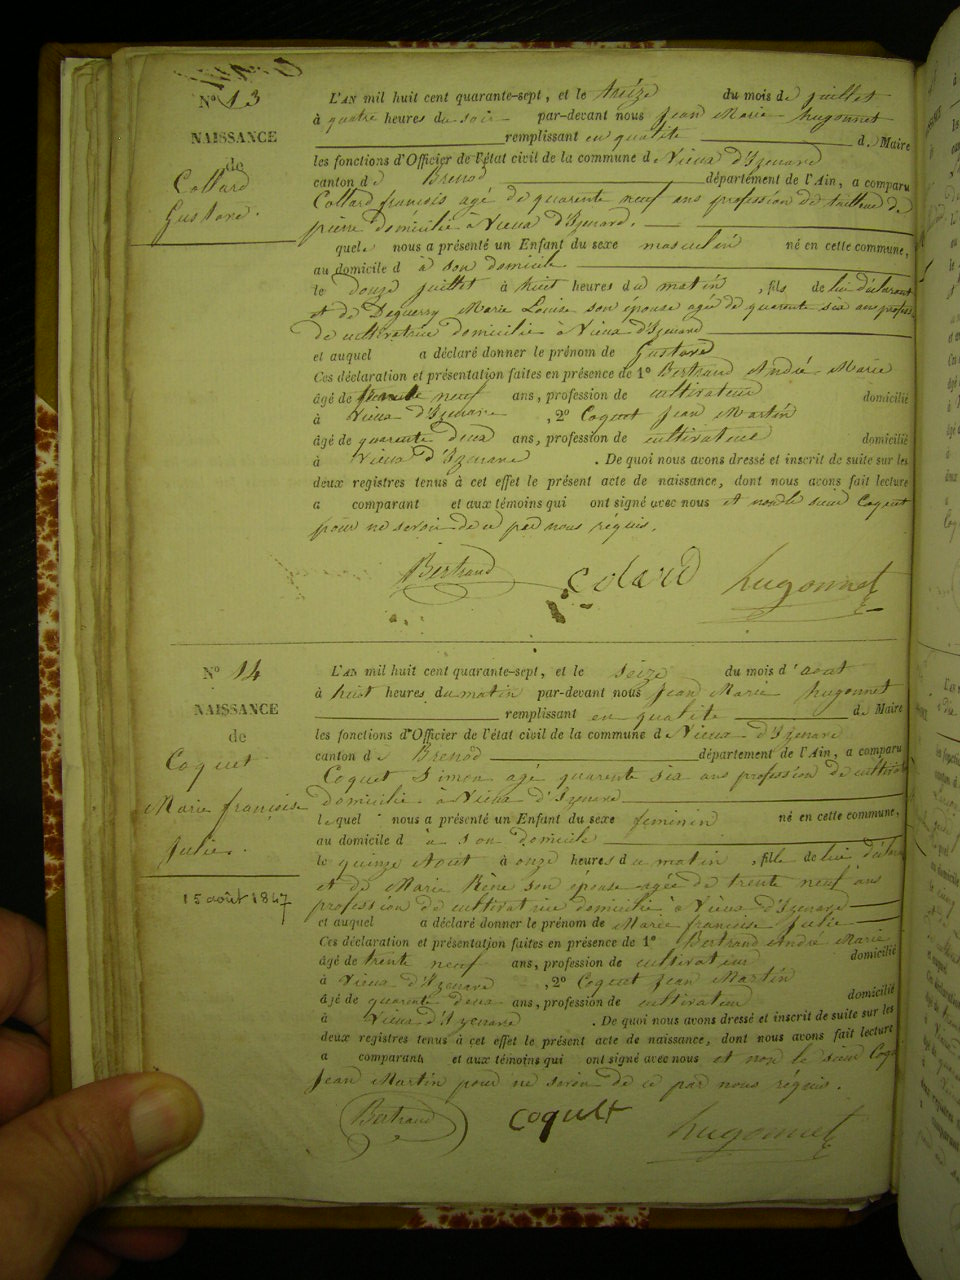 N° 13
NAISSANCE
de
Collard
Gustave.
L'AN mil huit cent quarante-sept, et le treize du mois de juillet
à quatre heures du soir par-devant nous Jean Marie hugonnet
remplissant en qualité de Maire
les fonctions d'Officier de l'état civil de la commune de Vieux d'Izenave
canton de Brenod département de l'Ain, a comparu
Collard françois agé de quarente neuf ans profession de tailleur de
pierre domicilié à Vieux d'Izenave.
quel nous a présenté un Enfant du sexe masculin né en cette commune,
au domicile d à son domicile
le douze juillet à huit heures du matin, fils de lui déclarant
et de Deguerry Marie Louise son épouse agée de quarente six ans profess
de cultivatrice domicilié à Vieux d'Izenave
et auquel a déclaré donner le prénom de Gustave
Ces déclaration et présentation faites en présence de 1° Bertrand André Marie
âgé de trente neuf ans, profession de cultivateur domicilié
à Vieux d'Izenave, 2° Coquet Jean Martin
âgé de quarente deux ans, profession de cultivateur domicilié
à Vieux d'Izenave. De quoi nous avons dressé et inscrit de suite sur les
deux registres tenus à cet effet le présent acte de naissance, dont nous avons fait lecture
a comparant et aux témoins qui ont signé avec nous et non le sieur Coquet
pour ne savoir de ce par nous réquis.
Bertrand Colard hugonnet
N° 14
NAISSANCE
de
Coquet
Marie françoise
Julie.
15 août 1847
L'AN mil huit cent quarante-sept, et le seize du mois d'aout
à huit heures du matin par-devant nous Jean Marie hugonnet
remplissant en qualité de Maire
les fonctions d'Officier de l'état civil de la commune de Vieux d'Izenave
canton de Brenod département de l'Ain, a comparu
Coquet Simon agé quarente six ans profession de cultivat
domicilié à Vieux d'Izenave
lequel nous a présenté un Enfant du sexe feminin né en cette commune,
au domicile d à son domicile
le quinze Aout à onze heures du matin, fille de lui déclara
et de Marie Rène son épouse agée de trente neuf ans
profession de cultivatrice domicilié à Vieux d'Izenave
et auquel a déclaré donner le prénom de Marie françoise Julie
Ces déclaration et présentation faites en présence de 1° Bertrand André Marie
âgé de trente neuf ans, profession de cultivateur domicilié
à Vieux d'Izenave, 2° Coquet Jean Martin
âgé de quarente deux ans, profession de cultivateur domicilié
à Vieux d'Izenave. De quoi nous avons dressé et inscrit de suite sur les
deux registres tenus à cet effet le présent acte de naissance, dont nous avons fait lecture
a comparant et aux témoins qui ont signé avec nous et non le sieur Coqu
Jean Martin pour ne savoir de ce par nous réquis.
Bertrand coquet hugonnet